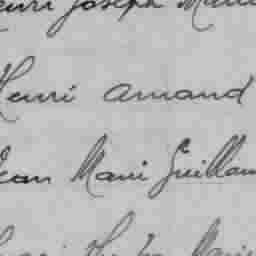 Joseph Marie
Henri Amand
Jean Marie Guillau